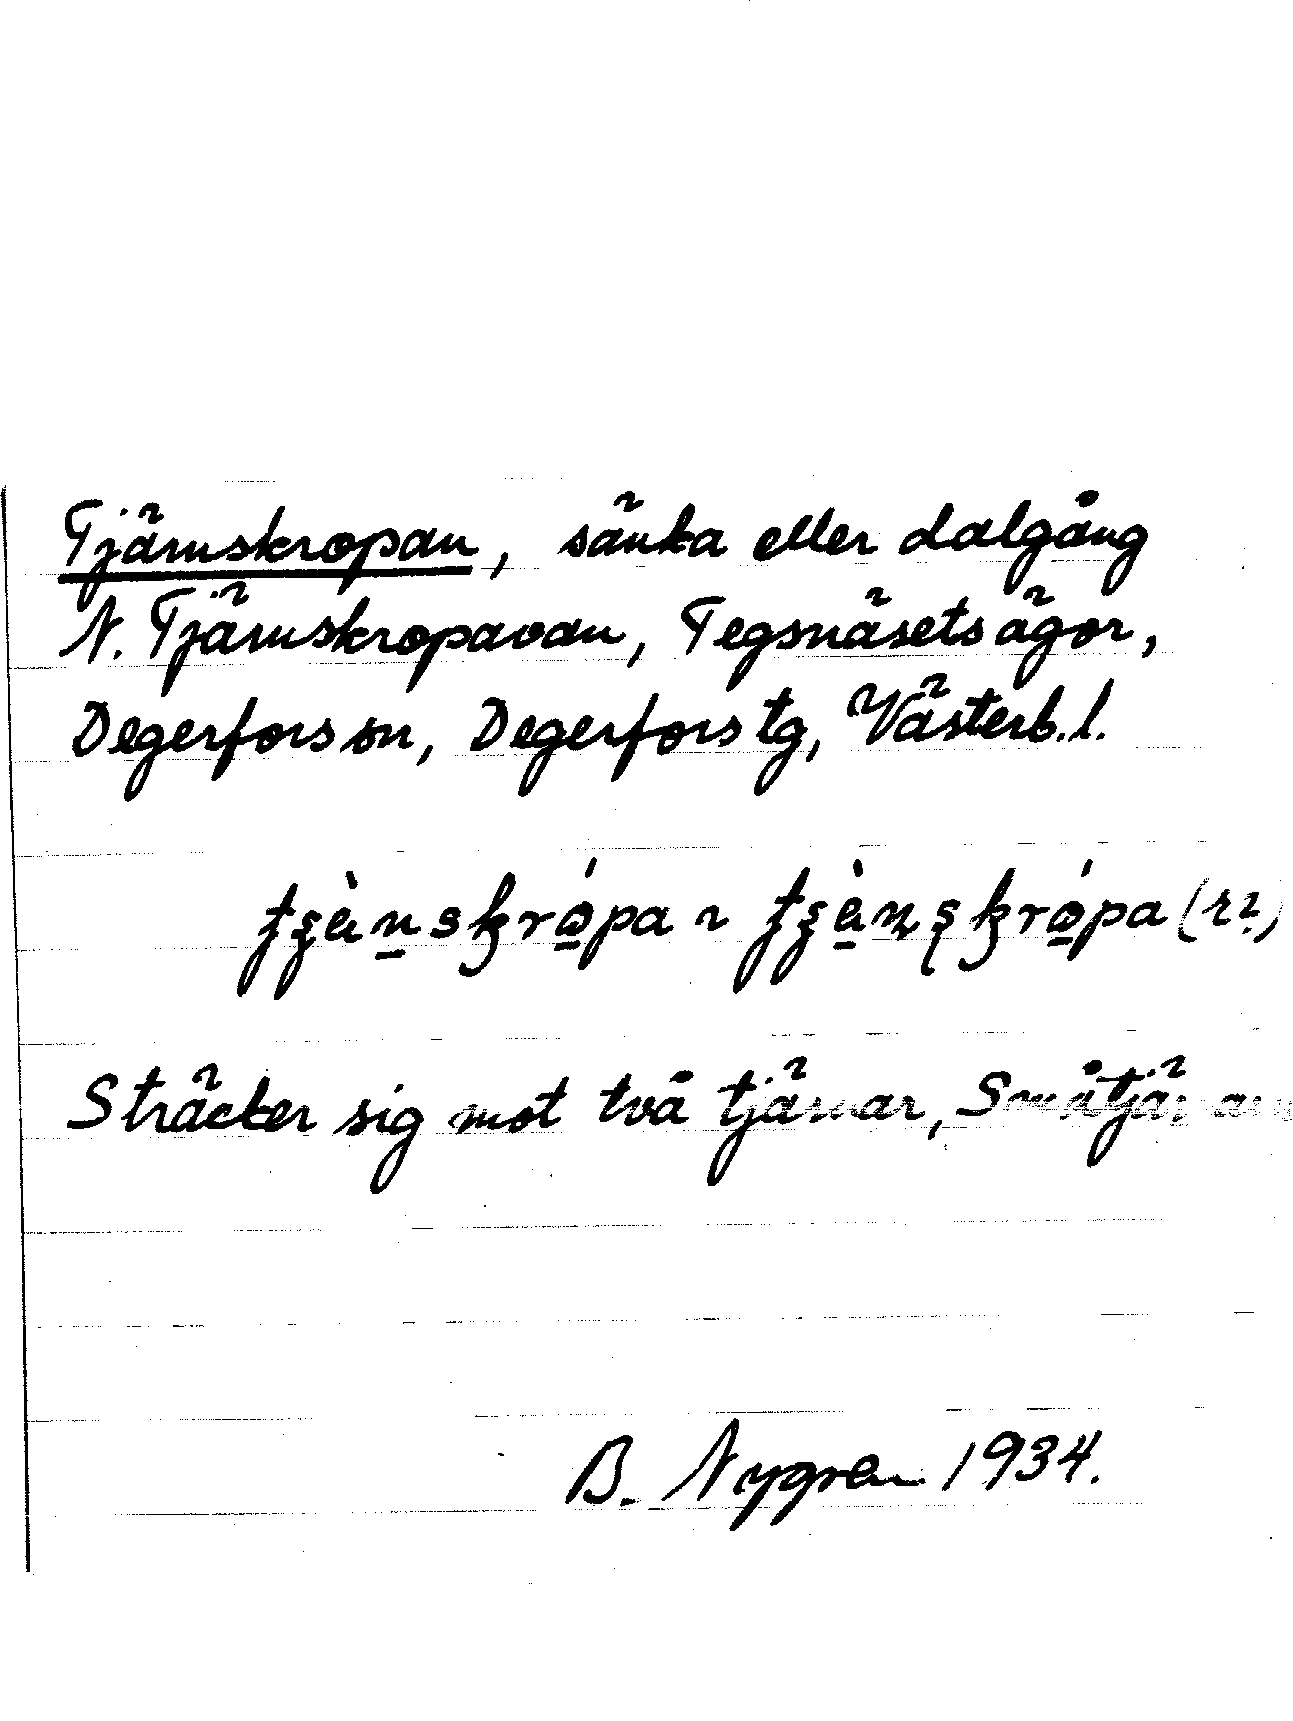 Tjärnskropan, sänka eller dalgång
N. Tjärnskropavan, Tegsnäsets ägor,
Degerfors sn, Degerfors tg, Västerb. l.
Sträcker sig mot två tjärnar,
B. Nygren 1934.